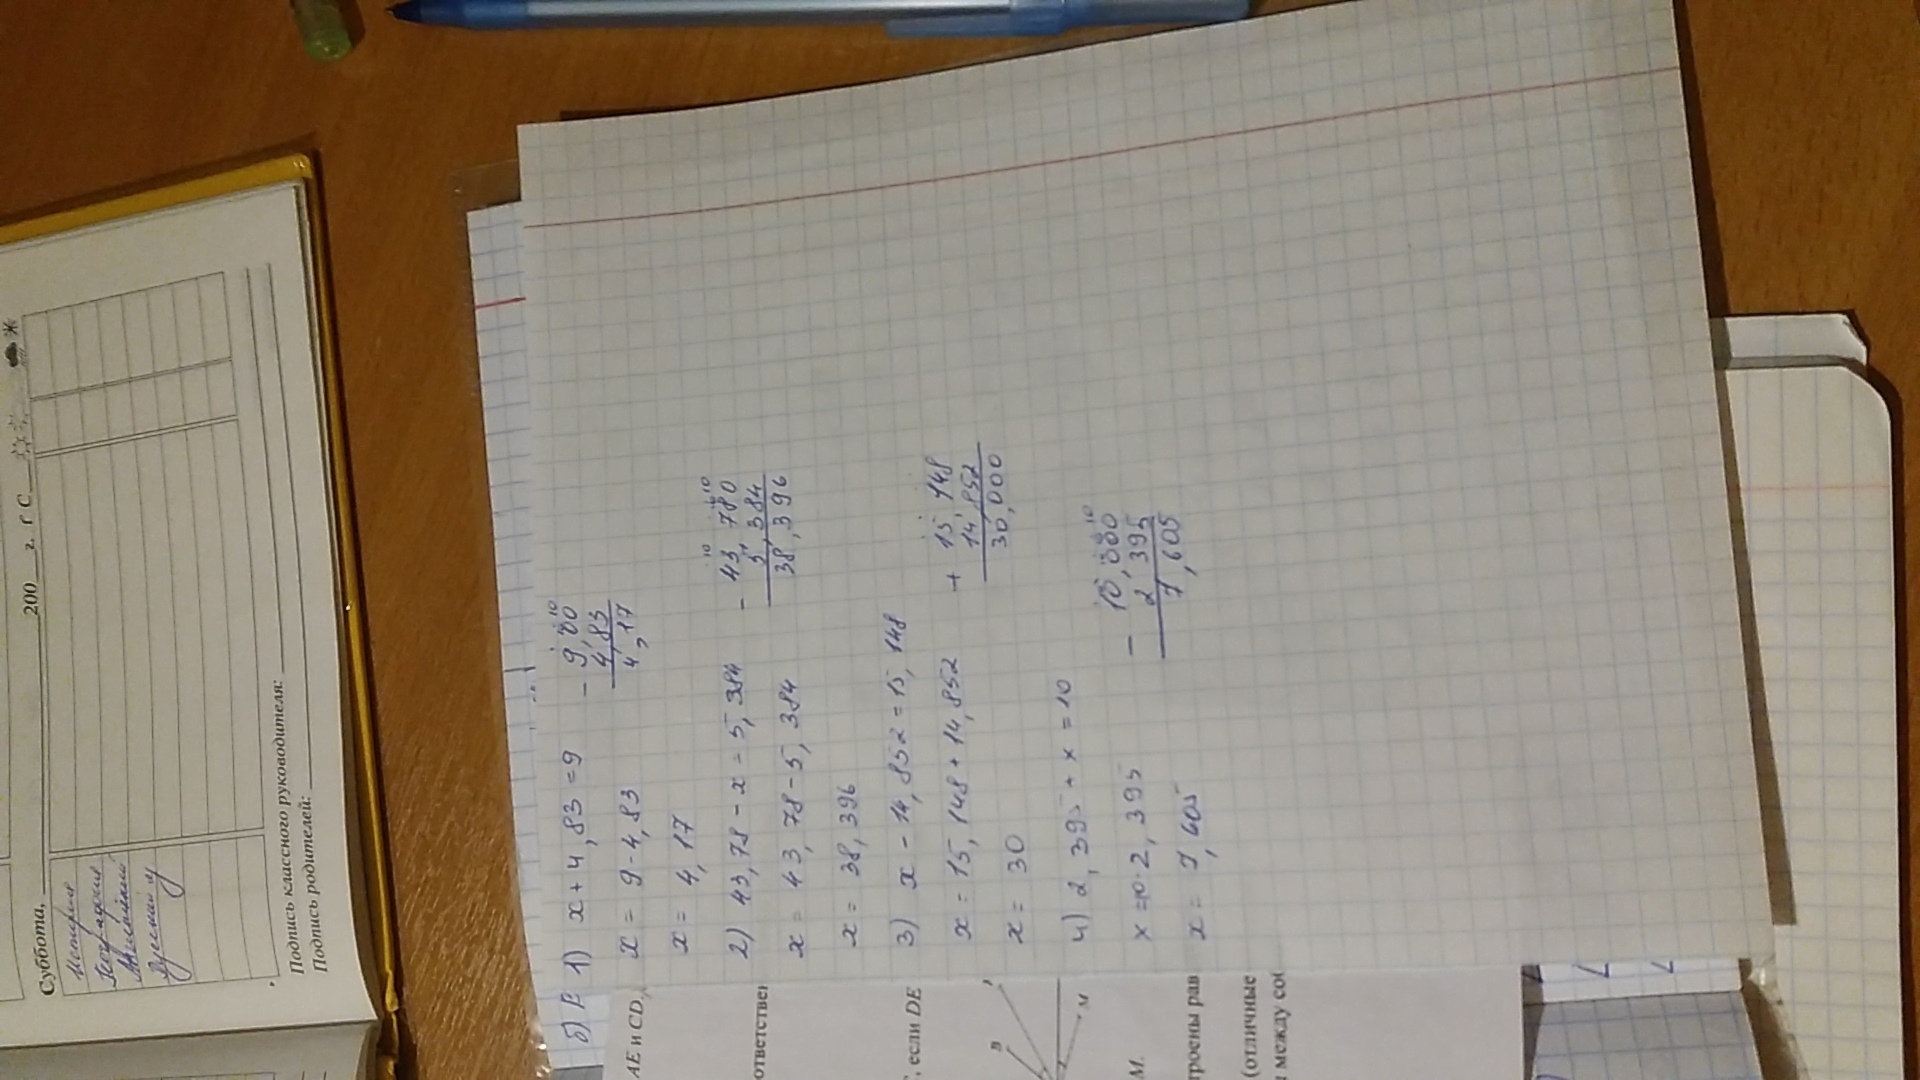 Суббота, 200 г. Г С
История
География
Английский
Русский яз
Подпись классного руководителя:
Подпись родителей:
б) 1) x + 4,83 = 9
x = 9 - 4,83
x = 4,17
- 9,00
4,83
4,17
2) 43,78 - x = 5,384
x = 43,78 - 5,384
x = 38,396
- 43,780
5,384
38,396
3) x - 14,852 = 15,148
x = 15,148 + 14,852
x = 30
+ 15,148
14,852
30,000
4) 2,395 + x = 10
x = 10 - 2,395
x = 7,605
- 10,000
2,395
7,605
AE и CD,
если DE
B
M
M.
троены рав
(отличные
и между соб